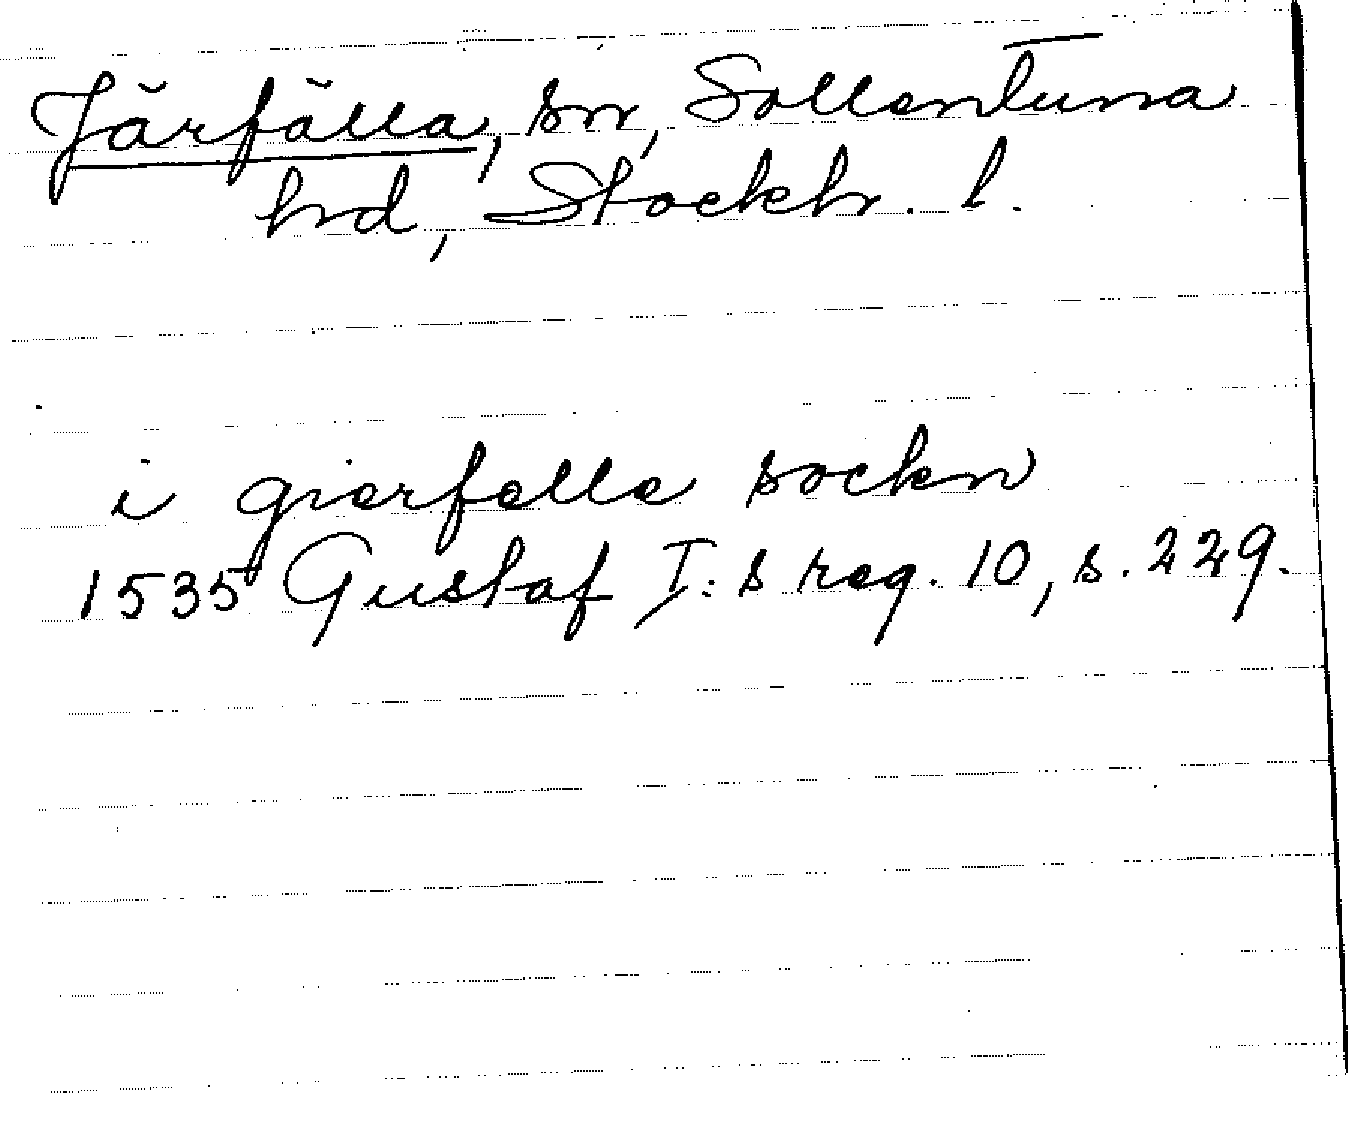 Järfälla, sn, Sollentuna
hrd, Stockh. l.
i gierfelle sockn
1535 Gustaf I:s reg. 10, s. 229.